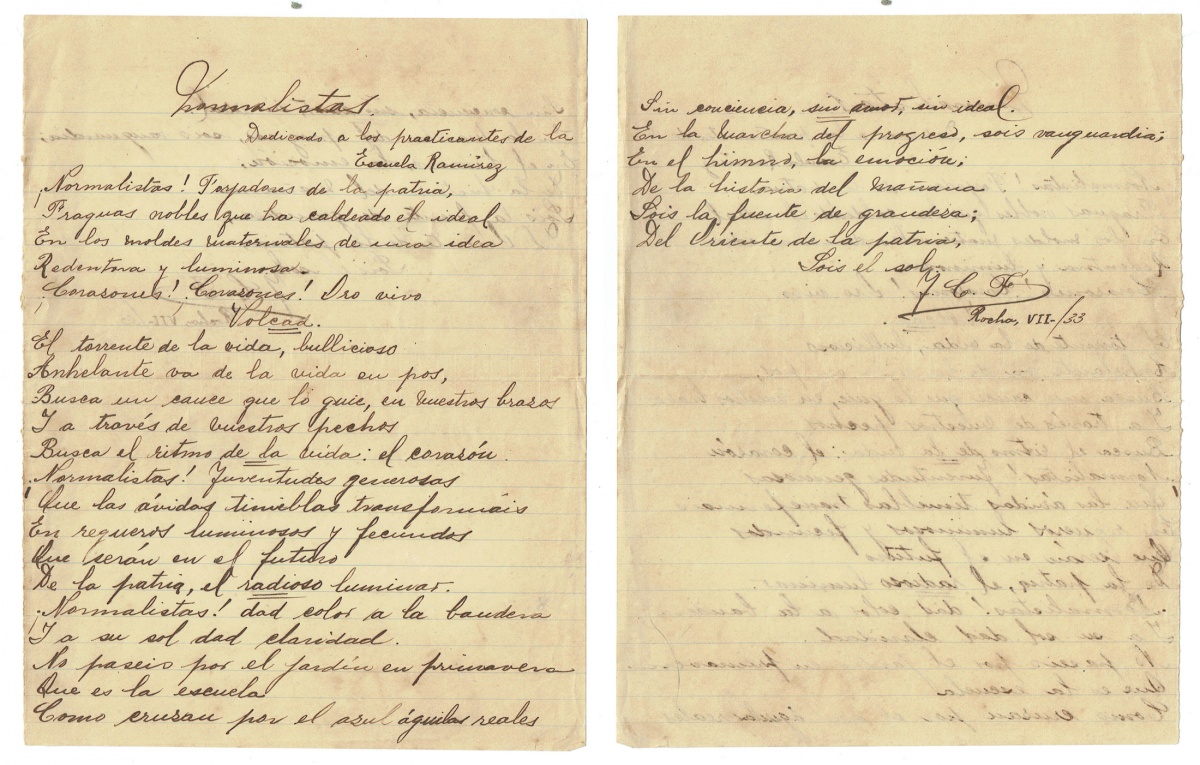 Normalistas.
Dedicado a los practicantes de la
Escuela Ramírez
¡Normalistas! Forjadores de la patria,
Fraguas nobles que ha caldeado el ideal
En los moldes maternales de una idea
Redentora y luminosa.
¡Corazones! ¡Corazones! Oro vivo
Volcad.
El torrente de la vida, bullicioso
Anhelante va de la vida en pos,
Busca un cauce que lo guíe, en vuestros brazos
Y a través de vuestros pechos
Busca el ritmo de la vida: el corazón.
¡Normalistas! Juventudes generosas
Que las ávidas tinieblas transformáis
En regueros luminosos y fecundos
Que serán en el futuro
De la patria, el radioso luminar.
¡Normalistas! dad color a la bandera
Y a su sol dad claridad.
No paseis por el jardín en primavera
Que es la escuela
Como cruzan por el azul águilas reales
Sin conciencia, sin amor, sin ideal.
En la marcha del progreso, sois vanguardia;
En el himno, la emoción;
De la historia del mañana
Sois la fuente de grandeza;
Del Oriente de la patria,
Sois el sol.
J. C. F.
Rocha, VII-/33